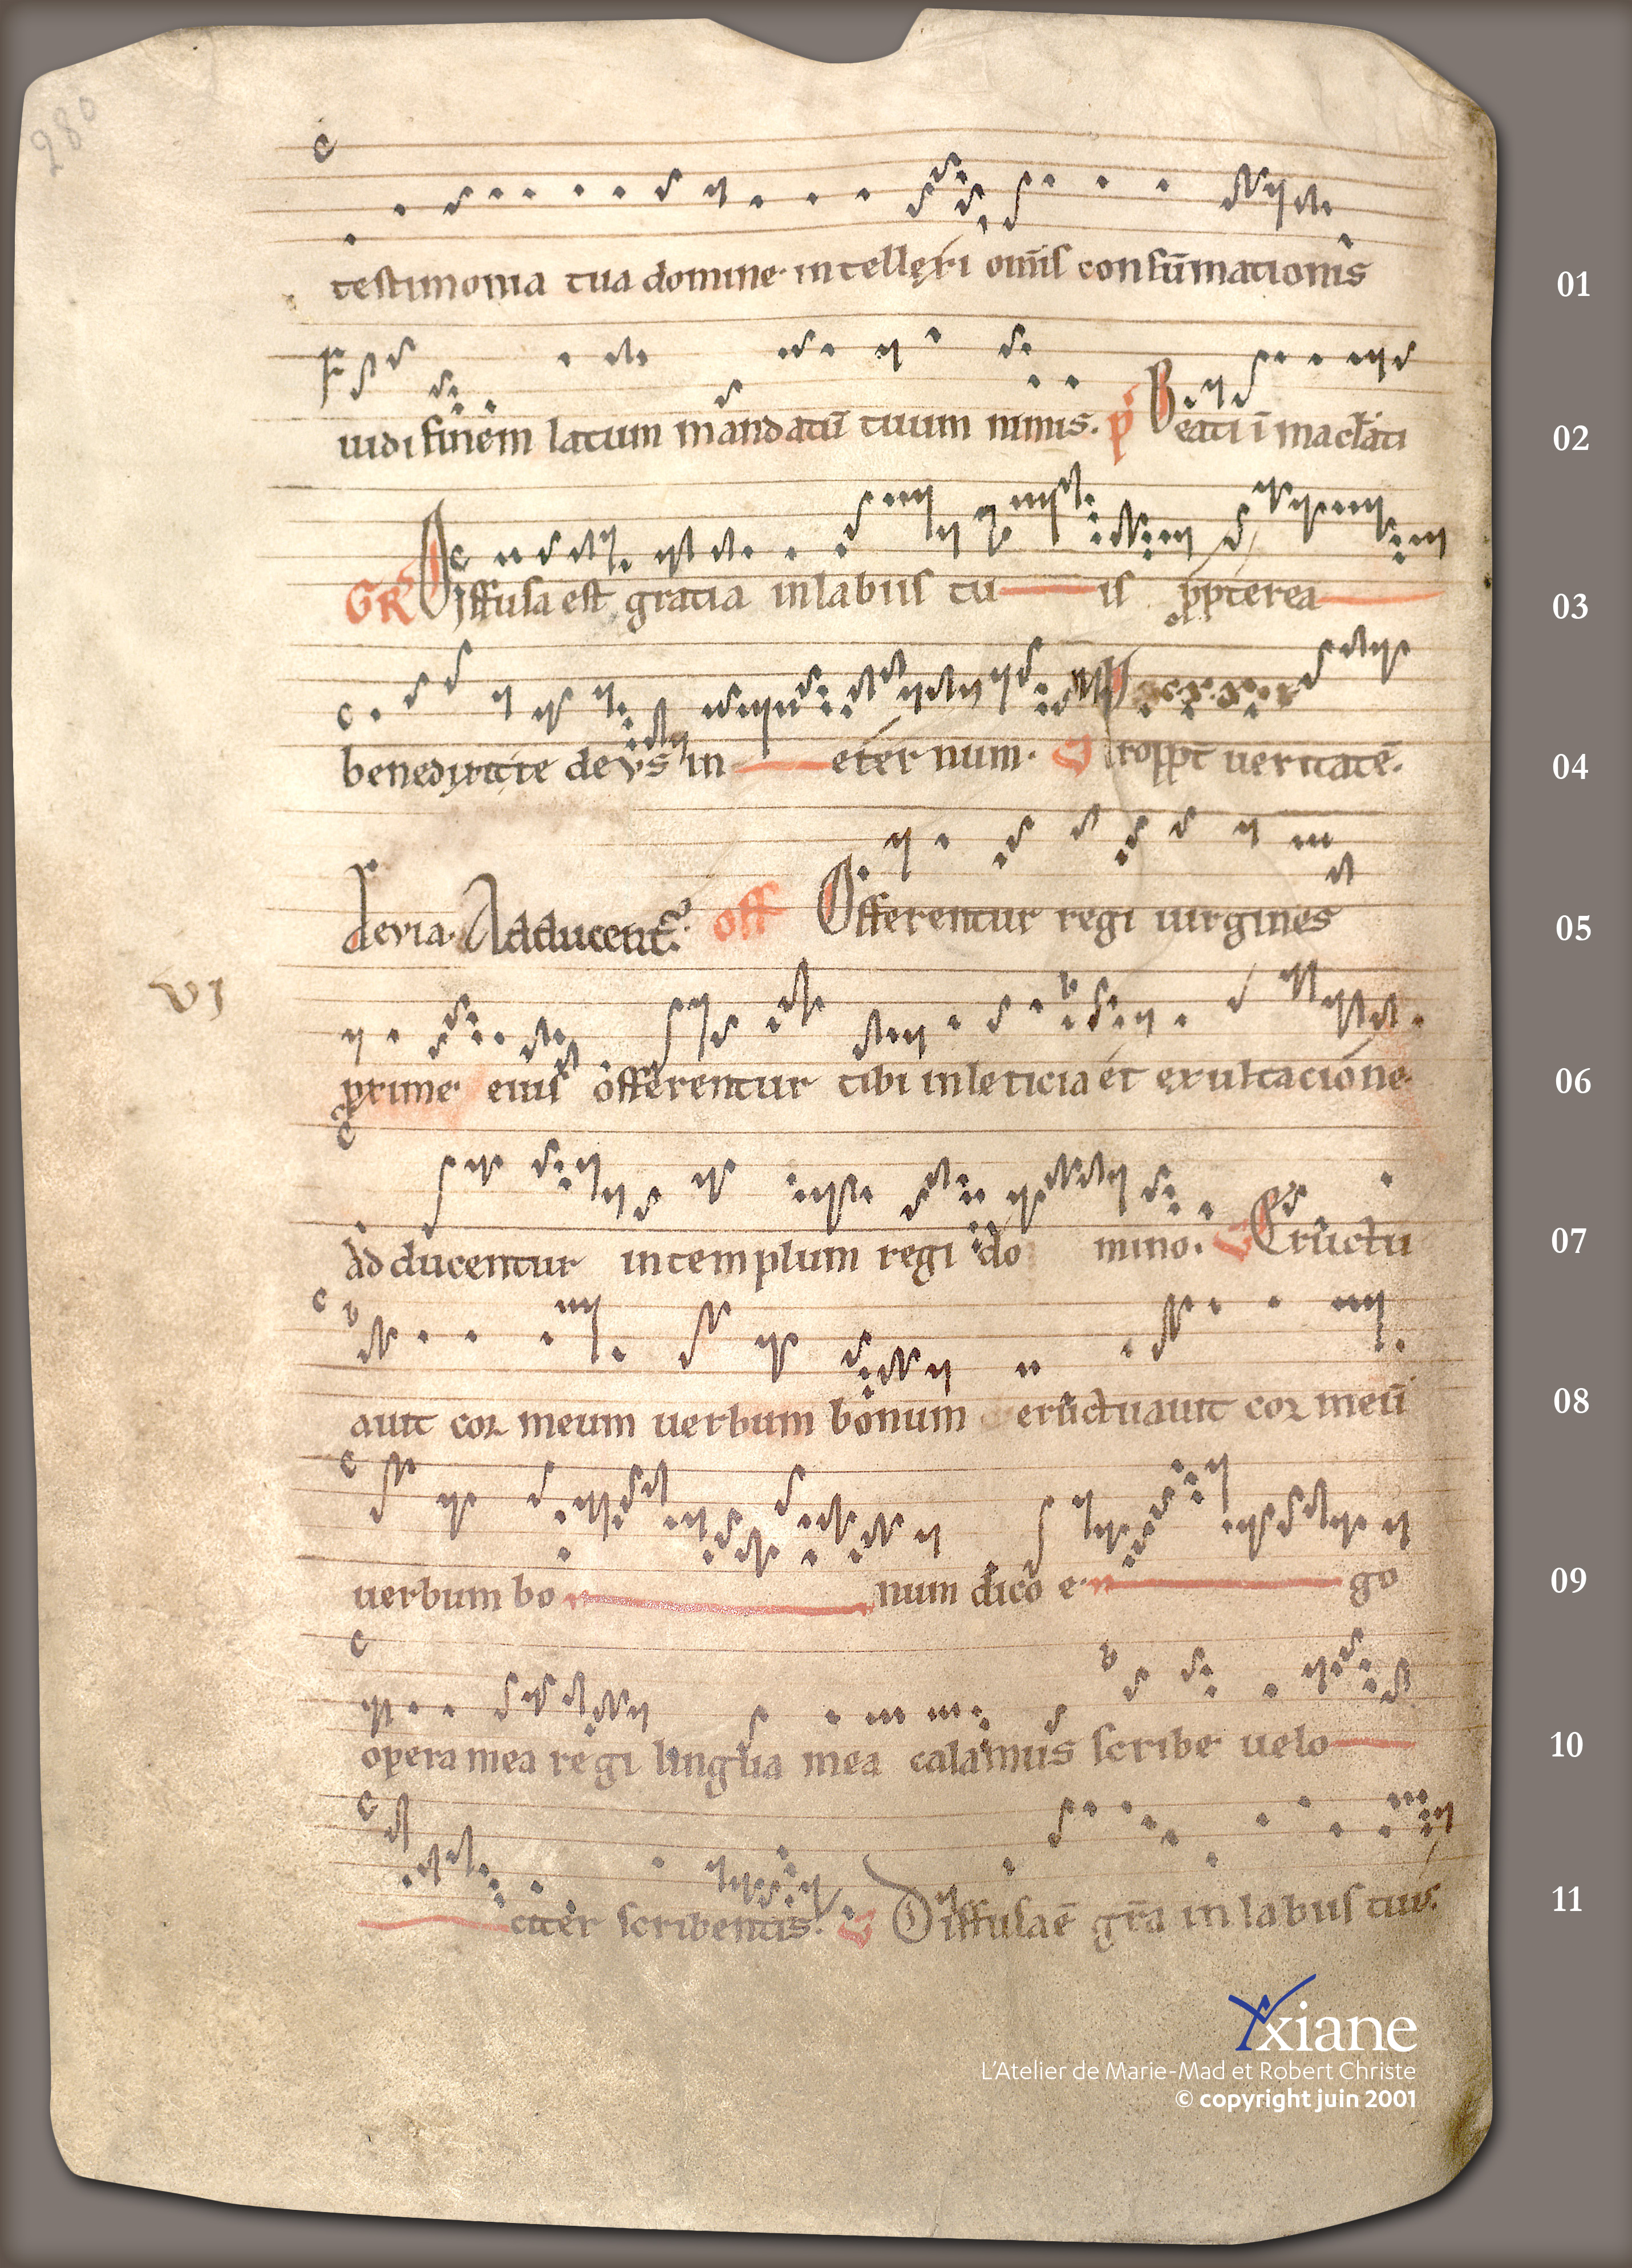 280
testimonia tua domine. intellexi om̄is consum̄mationis 01
uidi finem latum mandatū tuum nimis. Beati ī mac̄lati 02
GR Diffusa est gratia in labiis tu is ꝓpterea 03
benedixit te deus in eternum. ꝓpt̄ ueritatē. 04
Adducent̄. off Offerentur regi uirgines 05
VI
ꝓxime eius offerentur tibi in leticia et exultacione 06
Adducentur in templum regi domino. Eructu 07
auit cor meum uerbum bonum eructuauit cor meū 08
uerbum bo num dico e go 09
opera mea regi lingua mea calamus scribe uelo 10
citer scribentis. Diffusa ē gr̄a in labiis tuis. 11
Yxiane
L'Atelier de Marie-Mad et Robert Christe
© copyright juin 2001